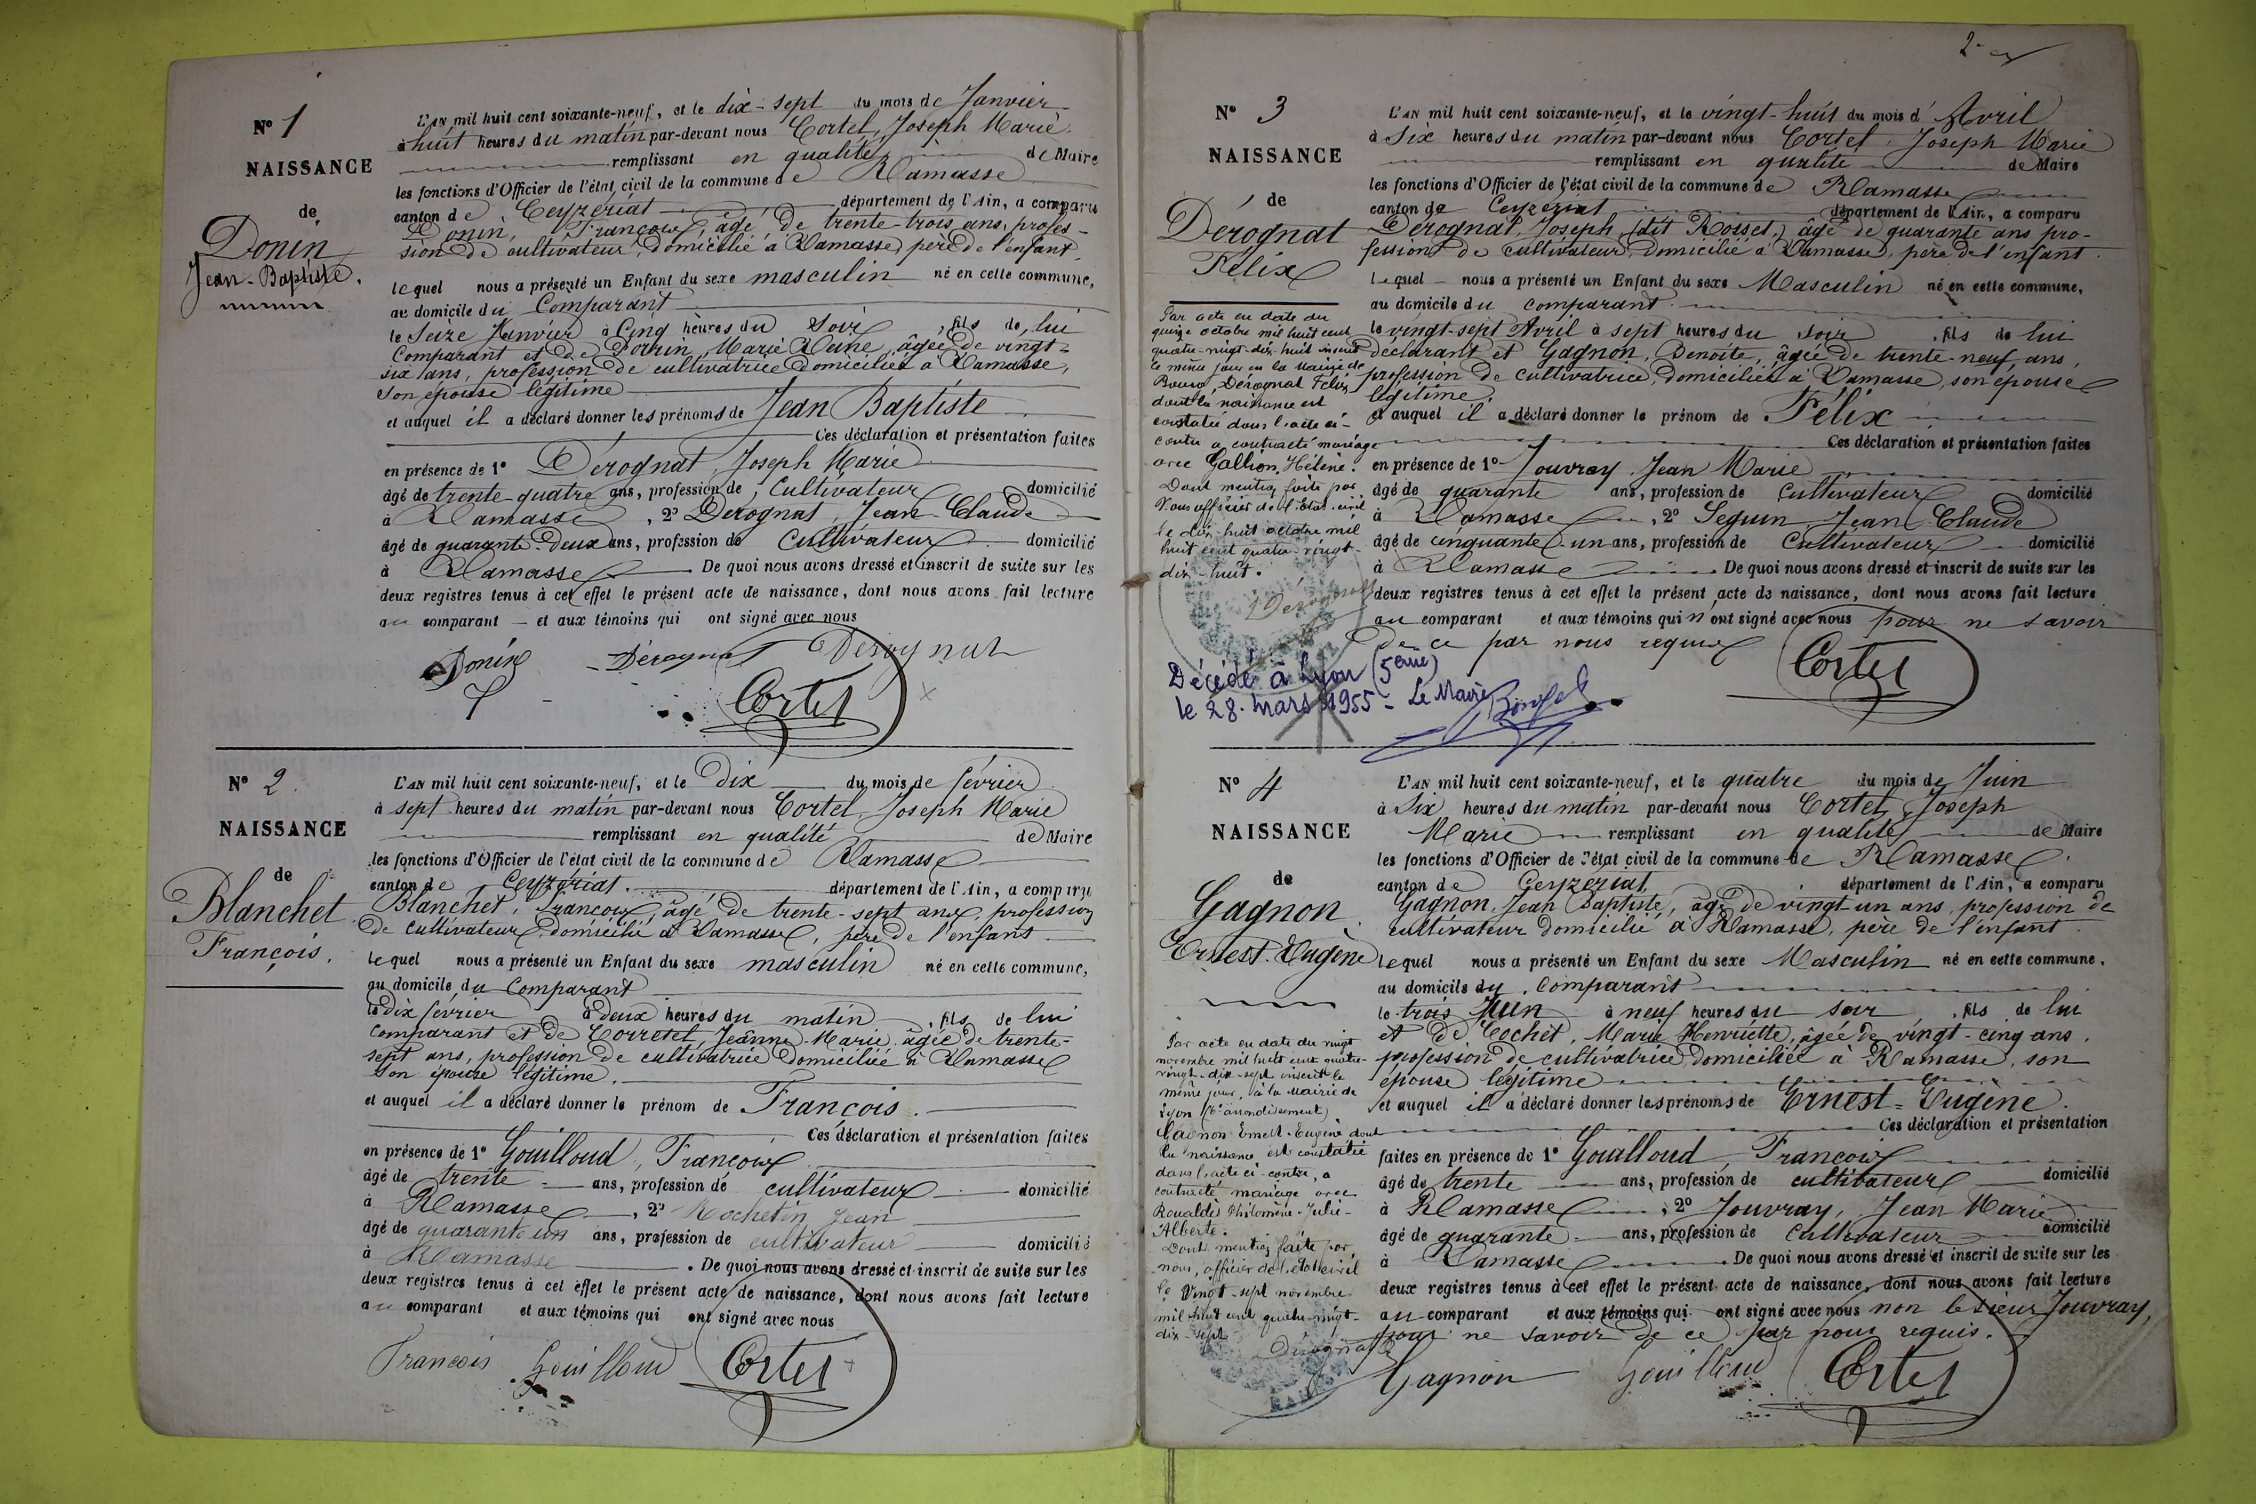 N° 1
NAISSANCE
de
Donin
Jean-Baptiste.
L'AN mil huit cent soixante-neuf, et le dix-sept du mois de Janvier
à huit heures du matin par-devant nous Cortel, Joseph Marie
remplissant en qualité de Maire
les fonctions d'Officier de l'état civil de la commune de Ramasse
canton de Ceyzeriat département de l'Ain, a comparu
Donin, François, âgé de trente-trois ans, profes-
sion de cultivateur, domicilié à Ramasse, père de l'enfant,
lequel nous a présenté un Enfant du sexe masculin né en cette commune,
au domicile du Comparant
le Seize Janvier à Cinq heures du Soir, fils de lui
Comparant et de Donin, Marie Reine, âgée de vingt-
six ans, profession de cultivatrice domiciliée à Ramasse,
son épouse légitime
et auquel il a déclaré donner les prénoms de Jean Baptiste
Ces déclaration et présentation faites
en présence de 1° Dérognat, Joseph Marie
âgé de trente-quatre ans, profession de Cultivateur domicilié
à Ramasse, 2° Derognat, Jean-Claude
âgé de quarante-deux ans, profession de Cultivateur domicilié
à Ramasse De quoi nous avons dressé et inscrit de suite sur les
deux registres tenus à cet effet le présent acte de naissance, dont nous avons fait lecture
au comparant et aux témoins qui ont signé avec nous
Donin Dérognat Dérognat
Cortel
N° 2.
NAISSANCE
de
Blanchet
François.
L'AN mil huit cent soixante-neuf, et le Dix du mois de février
à sept heures du matin par-devant nous Cortel, Joseph Marie
remplissant en qualité de Maire
les fonctions d'Officier de l'état civil de la commune de Ramasse
canton de Ceyzériat. département de l'Ain, a comparu
Blanchet, François âgé de trente-sept ans, profession
de cultivateur domicilié à Ramasse, père de l'enfant
lequel nous a présenté un Enfant du sexe masculin né en cette commune,
au domicile du Comparant
le dix février à deux heures du matin, fils de lui
comparant et de Corretel, Jeanne-Marie âgée de trente-
sept ans, profession de cultivatrice domiciliée à Ramasse
son épouse légitime.
et auquel il a déclaré donner le prénom de François.
Ces déclaration et présentation faites
en présence de 1° Gouilloud, François
âgé de trente ans, profession de cultivateur domicilié
à Ramasse, 2° Rochetin Jean
âgé de quarante un ans, profession de cultivateur domicilié
à Ramasse. De quoi nous avons dressé et inscrit de suite sur les
deux registres tenus à cet effet le présent acte de naissance, dont nous avons fait lecture
au comparant et aux témoins qui ont signé avec nous
François Gouilloud Cortel
2
N° 3
NAISSANCE
de
Dérognat
Félix
Par acte en date du
quinze octobre mil huit cent
quatre-vingt-dix-huit inscrit
le même jour en la Mairie de
Bourg, Dérognat Félix
dont la naissance est
constatée dans l'acte ci-
contre a contracté mariage
avec Gallion, Hélène.
Dont mention faite par
Nous officier de l'Etat-civil
le dix-huit octobre mil
huit cent quatre-vingt-
dix-huit.
Dérognat
Décédé à Lyon (5ème)
le 28. mars 1955 - Le Maire
L'AN mil huit cent soixante-neuf, et le vingt-huit du mois d'Avril
à Six heures du matin par-devant nous Cortel, Joseph Marie
remplissant en qualité de Maire
les fonctions d'Officier de l'état civil de la commune de Ramasse
canton de Ceyzeriat département de l'Ain, a comparu
Dérognat, Joseph, (dit Rosset,) âgé de quarante ans pro-
fession de cultivateur, domicilié à Ramasse, père de l'enfant.
lequel nous a présenté un Enfant du sexe Masculin né en cette commune,
au domicile du comparant
le vingt-sept Avril à sept heures du soir, fils de lui
déclarant et Gagnon, Benoîte, âgée de trente-neuf ans,
profession de cultivatrice, domiciliée à Ramasse, son épouse
légitime.
et auquel il a déclaré donner le prénom de Félix
Ces déclaration et présentation faites
en présence de 1° Jouvray Jean Marie
âgé de quarante ans, profession de Cultivateur domicilié
à Ramasse, 2° Seguin, Jean Claude
âgé de cinquante-un ans, profession de Cultivateur domicilié
à Ramasse. De quoi nous avons dressé et inscrit de suite sur les
deux registres tenus à cet effet le présent acte de naissance, dont nous avons fait lecture
au comparant et aux témoins qui n'ont signé avec nous pour ne savoir
de ce par nous requis
Cortel
N° 4
NAISSANCE
de
Gagnon
Ernest-Eugène
Par acte en date du vingt
novembre mil huit cent quatre-
vingt-dix-sept inscrit le
même jour, à la Mairie de
Lyon arrondissement)
Gagnon Ernest-Eugène dont
la naissance est constatée
dans l'acte ci-contre, a
contracté mariage avec
Philomène-Julie-
Alberte.
Dont mention faite par
nous, officier de l'état civil
le Vingt-sept novembre
mil huit cent quatre-vingt-
dix-sept
Dérognat
L'AN mil huit cent soixante-neuf, et le quatre du mois de Juin
à Six heures du matin par-devant nous Cortel, Joseph
Marie remplissant en qualité de Maire
les fonctions d'Officier de l'état civil de la commune de Ramasse.
canton de Ceyzeriat département de l'Ain, a comparu
Gagnon, Jean Baptiste, âgé de vingt-un ans, profession de
cultivateur domicilié à Ramasse, père de l'enfant.
lequel nous a présenté un Enfant du sexe Masculin né en cette commune,
au domicile du Comparant
le trois Juin à neuf heures du soir, fils de lui
et de Cochet, Marie Henriette, âgée de vingt-cinq ans,
profession de cultivatrice domiciliée à Ramasse, son
épouse légitime
et auquel il a déclaré donner les prénoms de Ernest-Eugène.
Ces déclaration et présentation
faites en présence de 1° Gouilloud, François
âgé de trente ans, profession de cultivateur domicilié
à Ramasse, 2° Jouvray, Jean Marie
âgé de quarante ans, profession de Cultivateur domicilié
à Ramasse. De quoi nous avons dressé et inscrit de suite sur les
deux registres tenus à cet effet le présent acte de naissance, dont nous avons fait lecture
au comparant et aux témoins qui ont signé avec nous non le sieur Jouvray,
pour ne savoir de ce par nous requis.
Gagnon Gouilloud Cortel